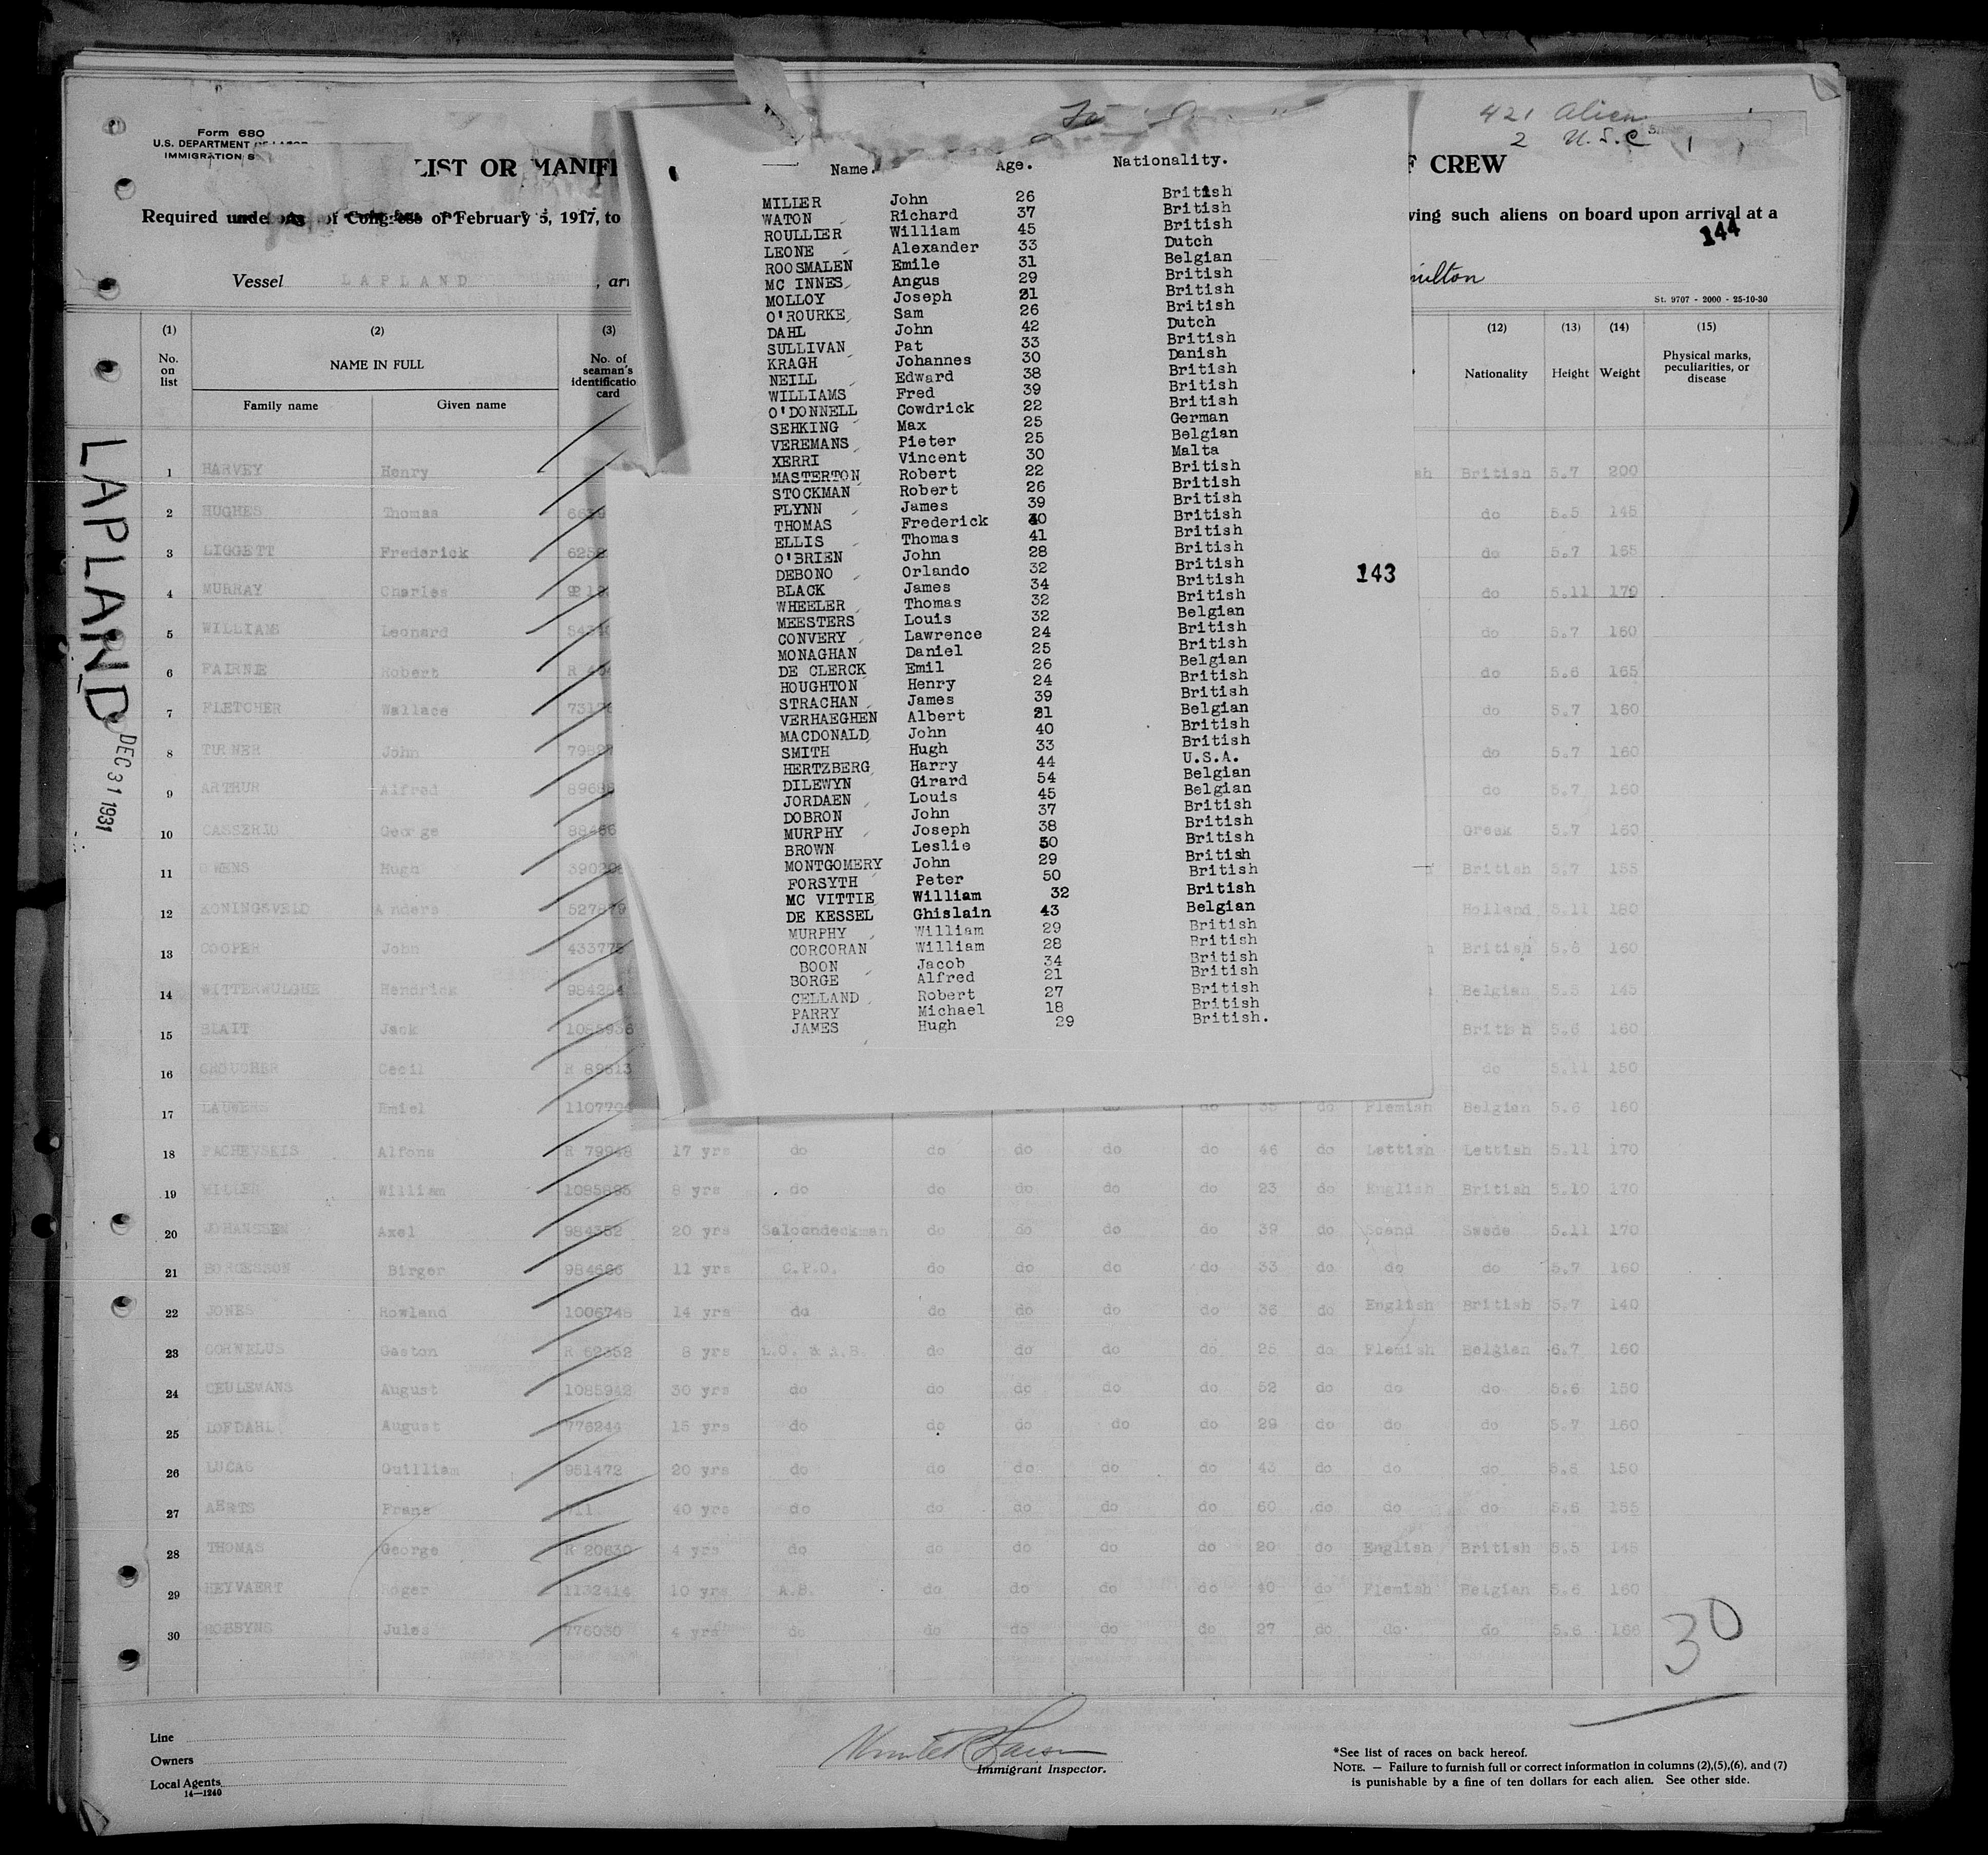 Form 680
U.S. DEPARTMENT OF LABOR
IMMIGRATION S
LIST OR MANIFE
F CREW
421 Alien
2 U.S.C
Required under Act of Congress of February 5, 1917, to
ving such aliens on board upon arrival at a
144
Vessel LAPLAND , arri
milton
St. 9707 - 2000 - 25-10-30
Name. Age. Nationality.
MILLER John 26 British
WATON Richard 37 British
ROULLIER William 45 British
LEONE Alexander 33 Dutch
ROOSMALEN Emile 31 Belgian
MC INNES Angus 29 British
MOLLOY Joseph 21 British
O'ROURKE Sam 26 British
DAHL John 42 Dutch
SULLIVAN Pat 33 British
KRAGH Johannes 30 Danish
NEILL Edward 38 British
WILLIAMS Fred 39 British
O'DONNELL Cowdrick 22 British
SEHKING Max 25 German
VEREMANS Pieter 25 Belgian
XERRI Vincent 30 Malta
MASTERTON Robert 22 British
STOCKMAN Robert 26 British
FLYNN James 39 British
THOMAS Frederick 40 British
ELLIS Thomas 41 British
O'BRIEN John 28 British
DEBONO Orlando 32 British
BLACK James 34 British
WHEELER Thomas 32 British
MEESTERS Louis 32 Belgian
CONVERY Lawrence 24 British
MONAGHAN Daniel 25 British
DE CLERCK Emil 26 Belgian
HOUGHTON Henry 24 British
STRACHAN James 39 British
VERHAEGHEN Albert 21 Belgian
MACDONALD John 40 British
SMITH Hugh 33 British
HERTZBERG Harry 44 U.S.A.
DILEWYN Girard 54 Belgian
JORDAEN Louis 45 Belgian
DOBRON John 37 British
MURPHY Joseph 38 British
BROWN Leslie 30 British
MONTGOMERY John 29 British
FORSYTH Peter 50 British
MC VITTIE William 32 British
DE KESSEL Ghislain 43 Belgian
MURPHY William 29 British
CORCORAN William 28 British
BOON Jacob 34 British
BORGE Alfred 21 British
CELLAND Robert 27 British
PARRY Michael 18 British
JAMES Hugh 29 British.
143
(1) (2) (3) (12) (13) (14) (15)
No. on list NAME IN FULL No. of seaman's identificatio card Nationality Height Weight Physical marks, peculiarities, or disease
Family name Given name
LAPLAND
DEC 31 1931
1 HARVEY Henry British 5.7 200
2 HUGHES Thomas do 5.5 145
3 LIGGETT Frederick 625 do 5.7 165
4 MURRAY Charles do 5.11 170
5 WILLIAMS Leonard do 5.7 160
6 FAIRNIE Robert do 5.6 165
7 FLETCHER Wallace 731 do 5.7 160
8 TURNER John do 5.7 160
9 ARTHUR Alfred do 5.7 160
10 CASSERIO George Greek 5.7 160
11 OWENS Hugh British 5.7 155
12 KONINGSVELD Anders Holland 5.11 180
13 COOPER John 433775 British 5.8 160
14 WITTERWULGHE Hendrick Belgian 5.5 145
15 BLAIT Jack 1085936 British 5.6 160
16 CROUCHER Cecil R 89613 do 5.11 150
17 LAUWERS Emiel 1107704 do do do 35 do Flemish Belgian 5.6 160
18 PACHEVSKIS Alfons R 79948 17 yrs do do do do do 46 do Lettish Lettish 5.11 170
19 MILLER William 1085895 8 yrs do do do do do 23 do English British 5.10 170
20 JOHANSSEN Axel 984352 20 yrs Saloondeckman do do do do 39 do Scand Swede 5.11 170
21 BORGESSON Birger 984666 11 yrs C.P.O. do do do do 33 do do do 5.7 160
22 JONES Rowland 1006748 14 yrs do do do do do 36 do English British 5.7 140
23 CORNELUS Gaston R 62352 8 yrs L.O. & A.B. do do do do 25 do Flemish Belgian 6.7 160
24 CEULEMANS August 1085942 30 yrs do do do do do 52 do do do 5.6 150
25 LOFDAHL August 776244 15 yrs do do do do do 29 do do do 5.7 160
26 LUCAS Guilliam 951472 20 yrs do do do do do 43 do do do 5.8 150
27 AERTS Frans 40 yrs do do do do do 60 do do do 5.6 155
28 THOMAS George R 20630 4 yrs do do do do do 20 do English British 5.5 145
29 HEYVAERT Roger 1132414 10 yrs A.B. do do do do 40 do Flemish Belgian 5.6 160
30 ROBBYNS Jules 776030 4 yrs do do do do do 27 do do do 5.6 166
30
Line
Owners
Local Agents
14—1240
Immigrant Inspector.
*See list of races on back hereof.
NOTE. — Failure to furnish full or correct information in columns (2),(5),(6), and (7)
is punishable by a fine of ten dollars for each alien. See other side.